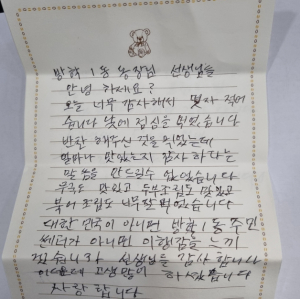 방학1동 동장님 선생님들
안녕하세요?
오늘 너무 감사해서 몇자 적어
습니다 낮에 점심을 먹었습니다
반찬 해주신 걸 먹었는데
얼마나 맛있는지 감사하다는
말씀을 안드릴수 없었습니다
무국도 맛있고 두부조림도 맛있고
북어조림도 너무 잘 먹었습니다
대한민국이 아니면 방학1동 주민
쎈터가 아니면 이행감을 느끼
선생님들 감사합니다
고생많이 하셨습니다
사랑합니다